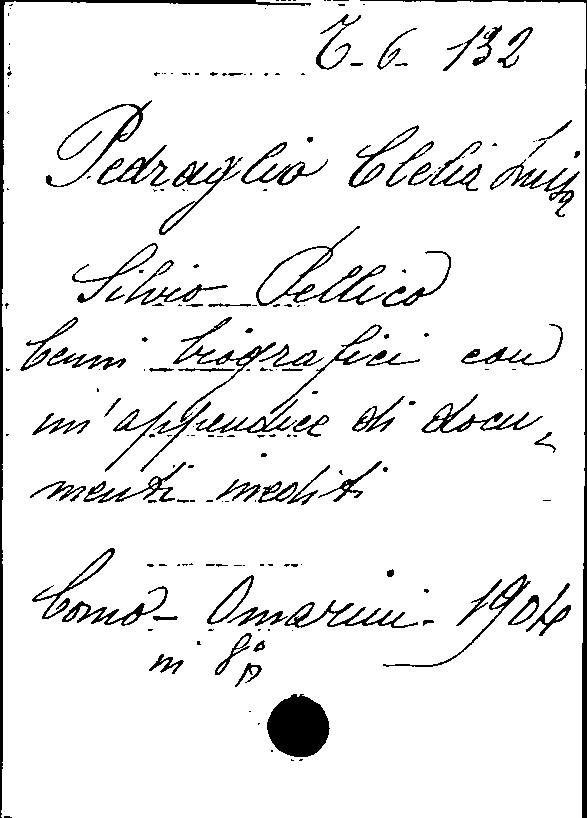 6-6-132
Pedraglio Clelia Luisa
Silvio Pellico
Cenni biografici con
un'appendice di docu-
menti inediti
Como - Omarini - 1904
in 8º p